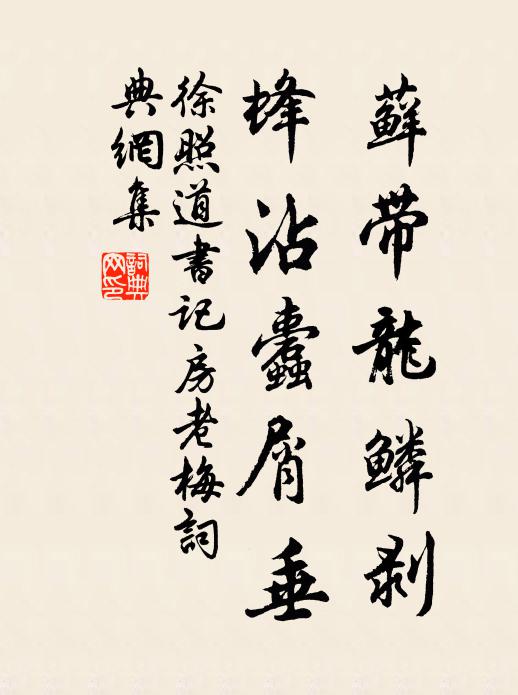 蘚帶龍鱗剥
蜂沾蠹屑垂
徐照道書記房老梅詞
典網集
詞典
网印